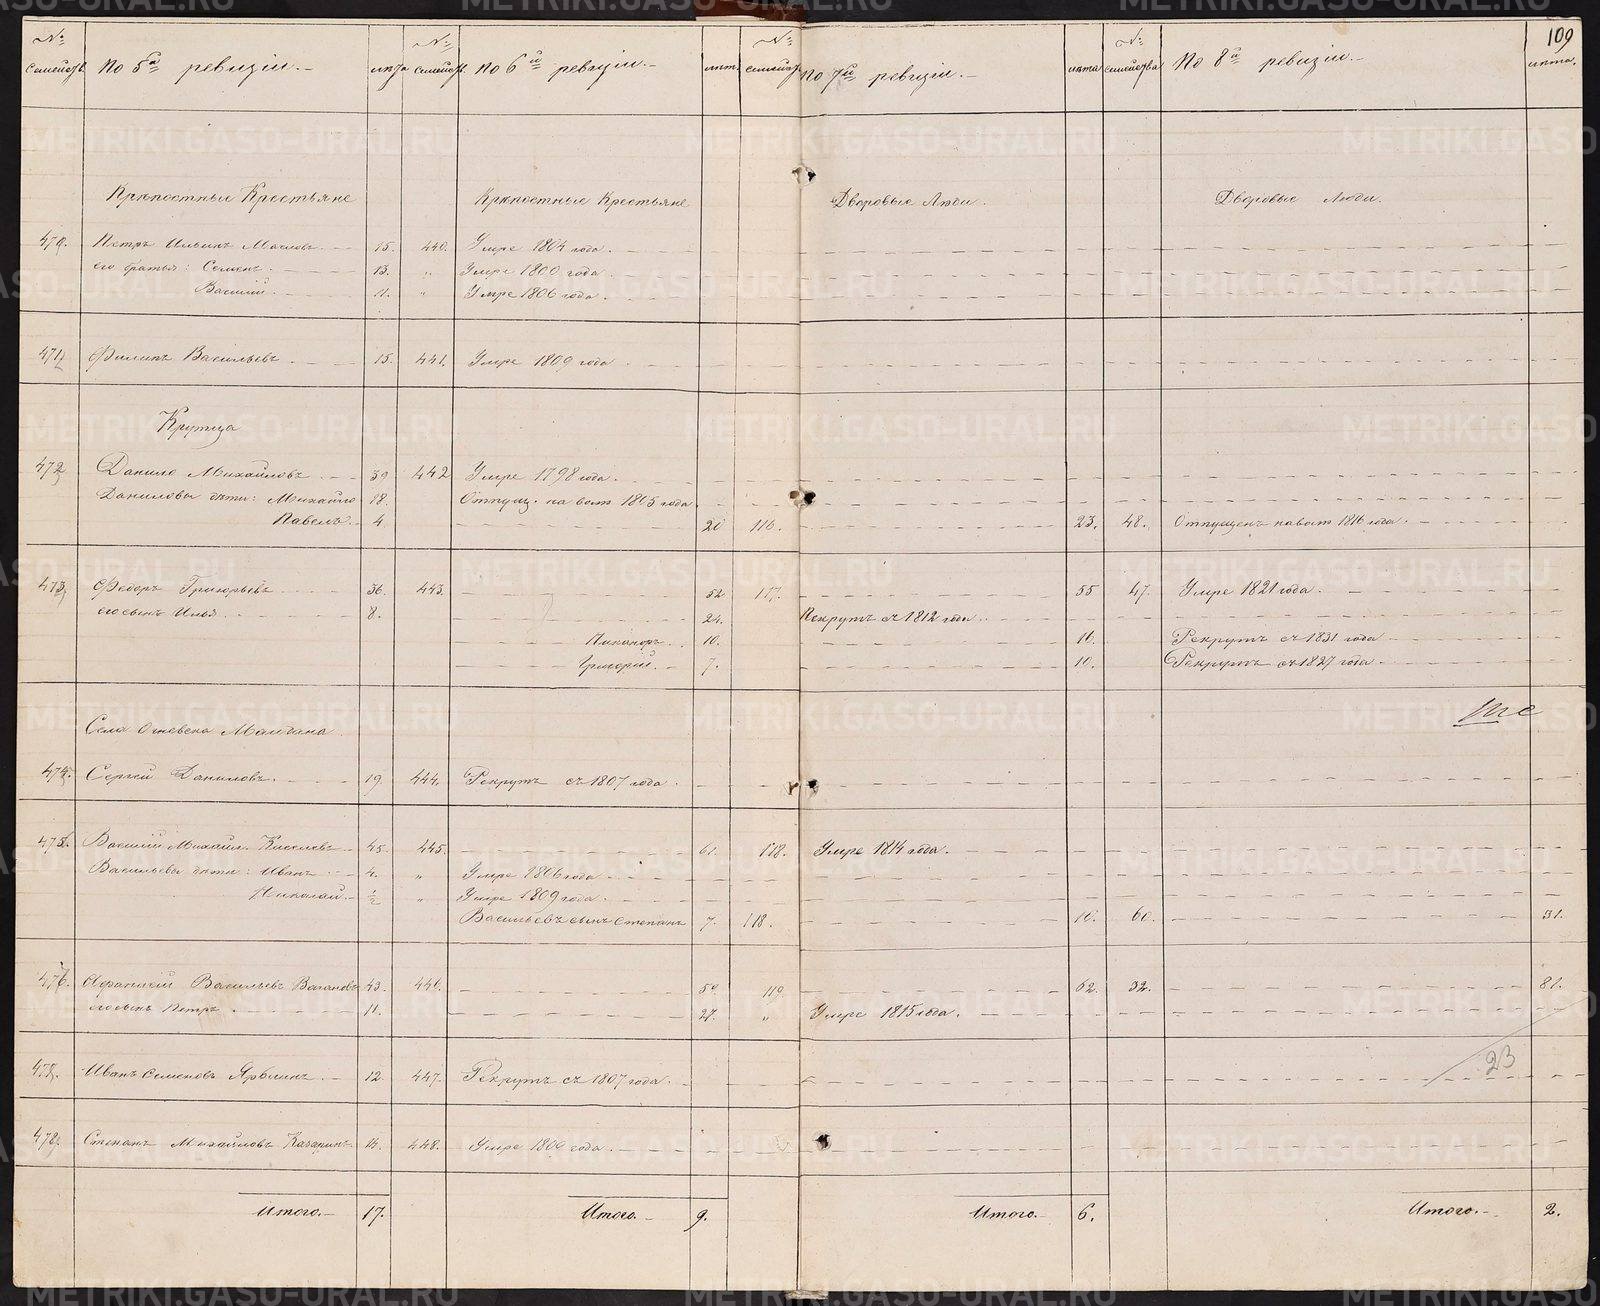 109
№ семейств. По 5й ревизіи.— лѣта № семейств. По 6й ревизіи.— лѣт. № семейств. По 7й ревизіи.— лѣта № семейства По 8й ревизіи.— лѣта.
Крѣпостные Крестьяне Крѣпостные Крестьяне Дворовые Люди. Дворовые Люди.
470. Петръ Ильинъ Маслов 15. 440. Умре 1804 года.
его братья: Семенъ. 13. „ Умре 1800 года.
Василій. 11. „ Умре 1806 года.
471. Филипъ Васильевъ 15. 441. Умре 1809 года
Крутца
472. Данило Михайловъ 39 442 Умре 1798 года.
Даниловы дѣти: Михайло 18. Отпущ. на волю 1805 года
Павелъ 4. 20 116. 23. 48. Отпущенъ на волю 1816 года.
473. Федоръ Григорьевъ 36. 443. 52 117. 55 47. Умре 1821 года.
его сынъ Илья 8. 24. Рекрутъ съ 1812 года
Никаноръ. 10. 1 Рекрутъ съ 1831 года
Григорій. 7. 10. Рекрутъ съ 1827 года
Села Огневска
474. Сергей Даниловъ. 19. 444. Рекрутъ съ 1807 года.
475. Василій Михайл. Киселевъ 45. 445. 61. 118. Умре 1814 года.
Васильевы дѣти: Иванъ 4. „ Умре 1806 года
Николай. ½ „ Умре 1809 года.
Васильевъ сынъ Степанъ 7. 118. 60. 31.
476. Афанасій Васильевъ Ваганов 43. 446. 59 119. 62. 32. 81.
его сынъ Петръ 11. 27. „ Умре 1815 года.
23
Иванъ Семеновъ 12. 447. Рекрутъ съ 1807 года.
478. Степанъ Михайловъ Казаринъ 14. 448. Умре 1800 года.
Итого.— 17. Итого.— 9. Итого.— 6. Итого.— 2.
METRIKI.GASO-URAL.RU